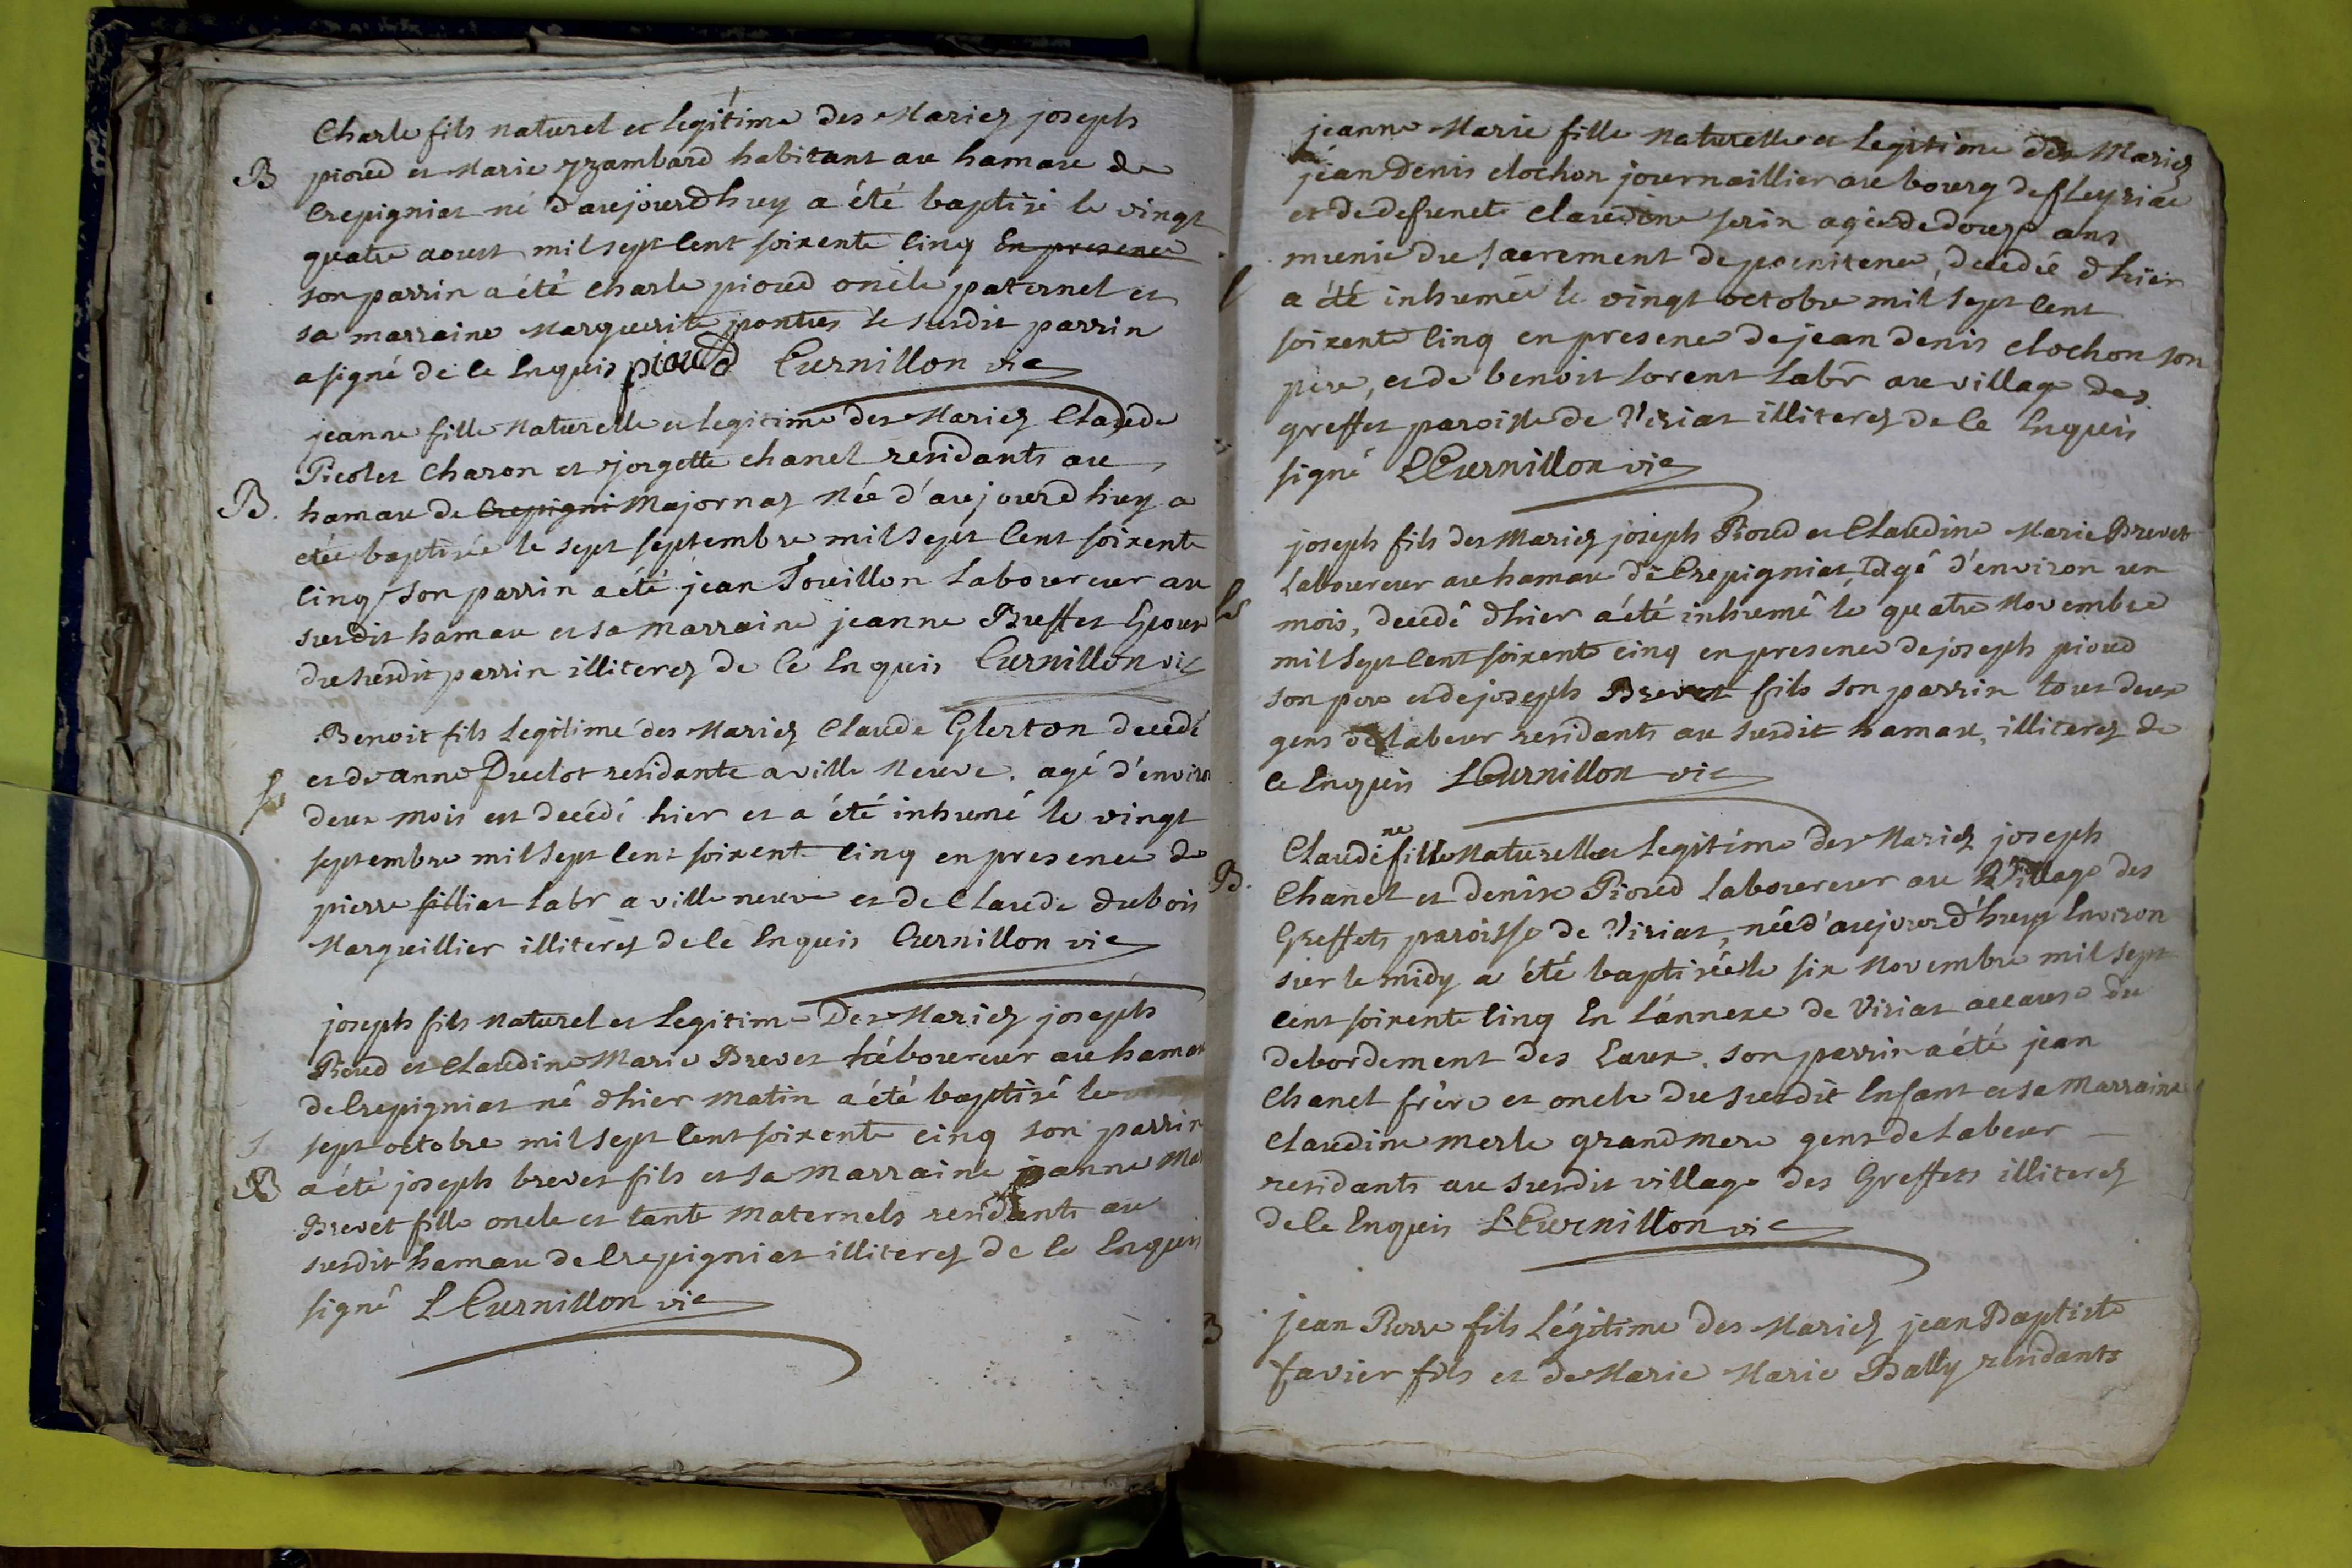 Charle fils naturel et legitime des Mariez joseph
B pioud et Marie grambard habitant au hamau de
Crepigniat né d'aujourdhuy a été baptisé le vingt
quatre aoust mil sept Cent soixente Cinq En presence
son parrin a été charle pioud oncle paternel et
sa marraine Marguerite pontus le susdit parrin
a signé de ce Enquis pioud Curnillon vic
jeanne fille Naturelle et legitime des Mariez Claude
Picolet Charon et jorgette chanel residants au
B. hamau de Crepigni Majornas Née d'aujourdhuy a
etée baptisée le sept septembre mil sept Cent soixente
Cinq son parrin a été jean Souillon Laboureur au
susdit hamau et sa marraine jeanne Buffet Epouse
du susdit parrin illiterez de Ce Enquis Curnillon vic
Benoit fils legitime des Mariez Claude Glerton decedé
et de anne Duclot residante a ville Neuve. agé d'environ
S deux mois est decedé hier et a été inhumé le vingt
septembre mil sept Cent soixente Cinq en presence de
pierre filliat Labr a ville neuve et de Claude dubois
Marguillier illiterez de Ce Enquis Curnillon vic
joseph fils naturel et Legitime Des Mariez joseph
Pioud et Claudine Marie Brevet Léboureur au hamau
de Crepigniat né dhier matin a été baptisé le
S sept octobre mil sept Cent soixente cinq son parrin
B a été joseph brevet fils et sa Marraine jeanne Ma
Brevet fille oncle et tante Maternels residants au
susdit hamau de Crepigniat illiterez de Ce Enquis
signé L Curnillon vic
jeanne Marie fille Naturelle et Legitime des Mariez
jean Denis clochon journaillier au bourg de fleyriac
et de defunete Claudine serin agée de douze ans
munie du sacrement de poenitence, decedée dhier
a été inhumée le vingt octobre mil sept Cent
soixente Cinq en presence de jean denis clochon son
père, et de benoit Lorent Labr au village des
greffet paroisse de Viriat illiterez de Ce Enquis
signé L Curnillon vic
joseph fils des Mariez joseph Pioud et Claudine Marie Brevet
Laboureur au hamau de Crepigniat, agé d'environ un
S mois, decedé dhier a été inhumé le quatre Novembre
mil sept Cent soixente cinq en presence de joseph pioud
son pere et de joseph Brevet fils son parrin tous deux
gens de labeur residants au susdit hamau, illiterez de
Ce Enquis L Curnillon vic
Claudine fille Naturelle et Legitime des Mariez joseph
B. Chanel et denise Pioud Laboureur au Village des
Greffets paroisse de Viriat, née d'aujourd'huy Environ
sur le midy a été baptisée le six Novembre mil sept
Cent soixente Cinq En L'annexe de Viriat a cause du
debordement des Eaux. son parrin a été jean
Chanel frère et oncle du susdit Enfant et sa Marraine
Claudine merle grandmere gens de Labeur
residants au susdit village des Greffets illiterez
de Ce Enquis L Curnillon vic
B jean Pierre fils Légitime des Mariez jean Baptiste
favier fils et de Marie Marie Bally residants